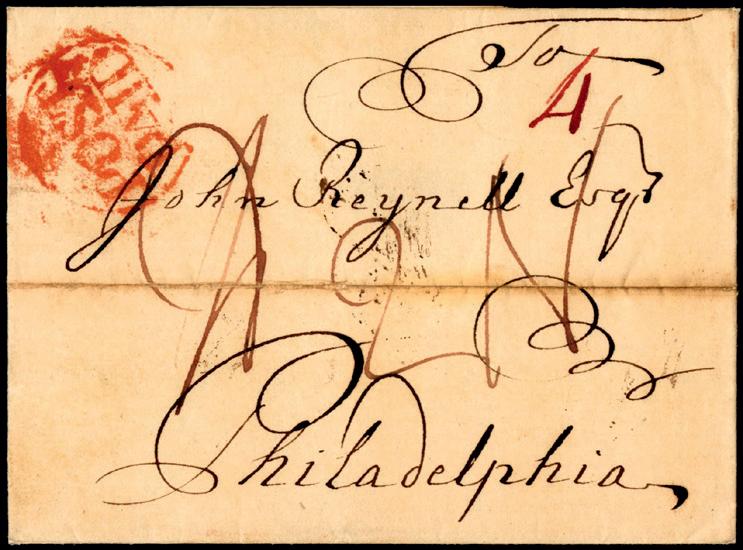 To
4
John Reynell Esqr
2 N
Philadelphia